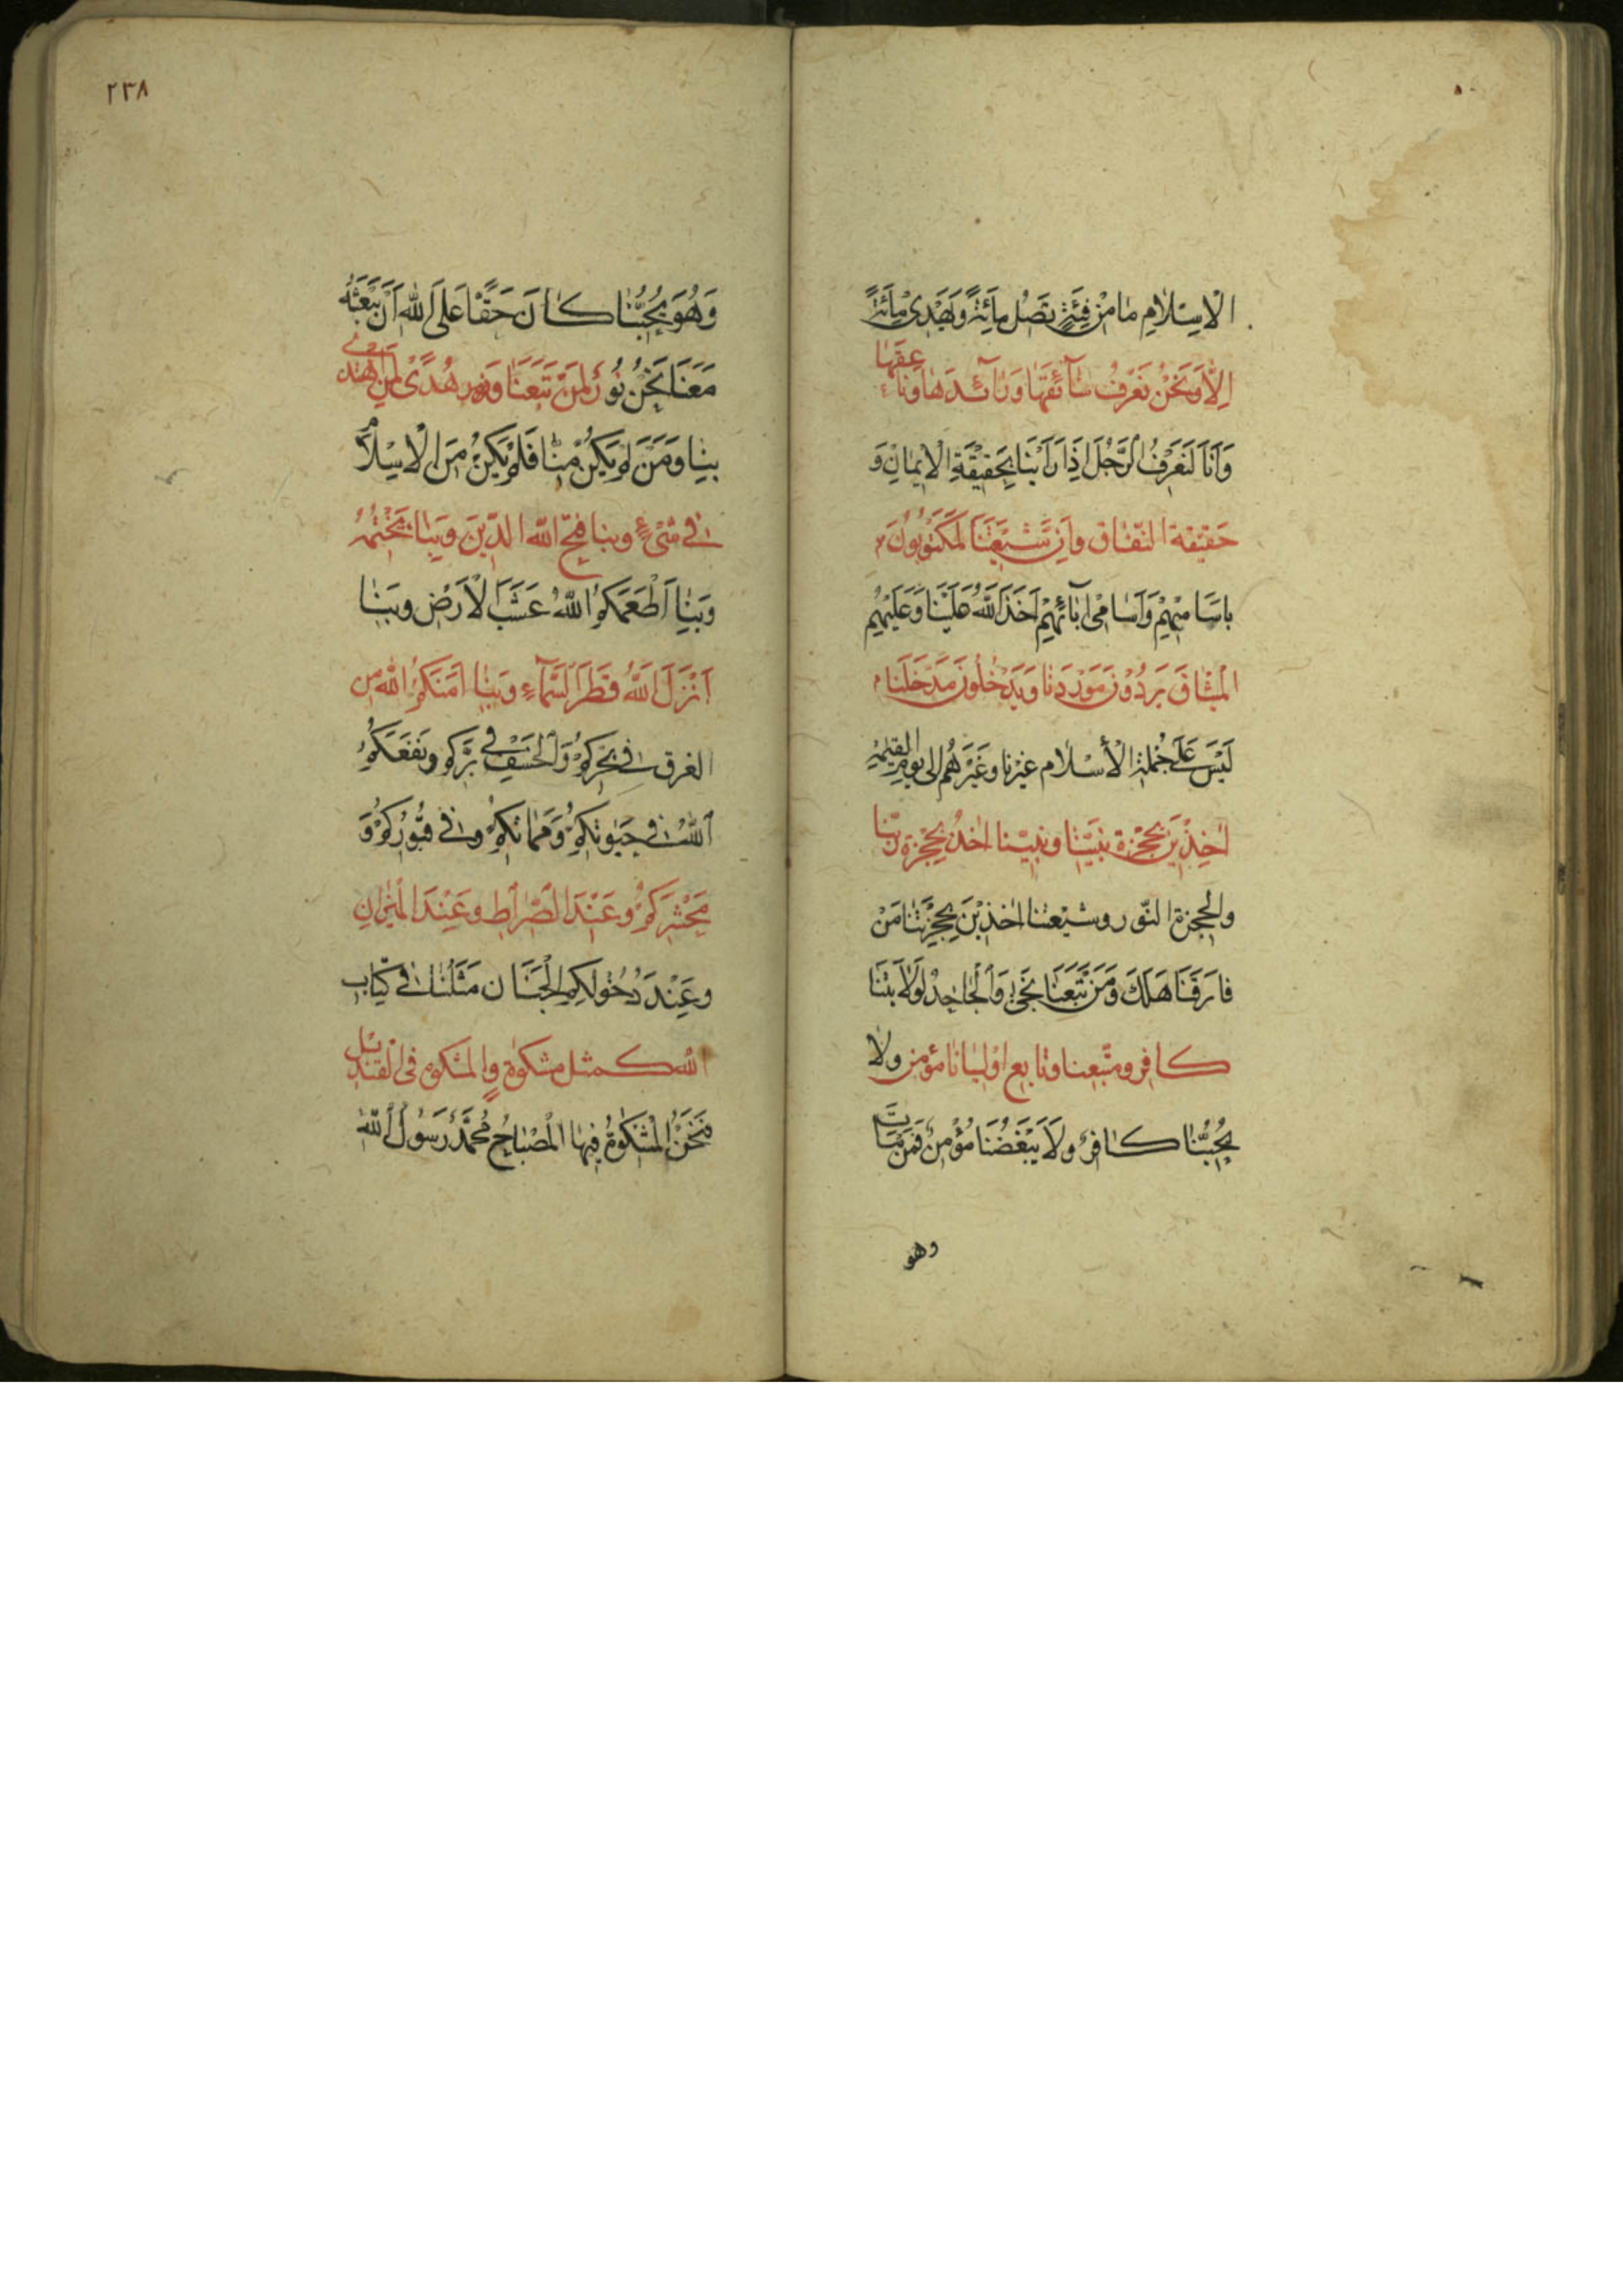 الْاِسْلامِ مٰا مِنْ فِئَةٍ تَضِلُّ مِائَةً وَتَهْدِى مِائَةً
اِلّا وَنَحْنُ نَعْرِفُ سٰائِقَهٰا وَ رٰائِدَهٰا وَنٰاعِقَهٰا
وَاَنَا لَنَعْرِفُ الرَّجُلَ اِذَا رَاَيْنَا بِحَقِيْقَةِ الْايمٰانِ وَ
حَقيْقَة النّفاق وَاِنَّ شيْعَتَنَا لَمَكْتُوْبُوْنَ
باَسَامِيْهِمْ وَاَسٰامِى اٰبائِهِمْ اَخَذَ اللّٰهُ عَلَيْنَا وَعَلَيْهِمُ
الْمِيْثٰاقَ يَرِدُوْنَ مَوْرِدَنا وَيَدْخُلُونَ مَدْخَلَنا
لَيْسَ عَلَى جُمْلَةِ الْأسْلٰام غيْرنا وَغيْرهُم الى يوم القيٰمةِ
اٰخِذيْنَ بِحُجْزةِ نبيّنا ونبيّنا اٰخذٌ بِحُجْزة ربّنا
والحجزة النّور وشيْعتنا اٰخذيْنَ بِحُجْزتِنٰا مَنْ
فارَقَنَا هَلَكَ وَمَنْ تَبِعَنَا نَجٰى وَالْجٰاحِدُ لِوَلايَتِنَا
كافِر ومتّبعنا وتابع اوْليٰانا مؤمن ولا
يُحِبُّنَا كٰافِرٌ ولَا يَبْغَضُنَا مُؤْمِنٌ فَمَنْ مَاتَ
وهو
٢٣٨
وَهُوَ يُحِبُّنَا كانَ حَقًّا عَلَى اللّٰهِ اَنْ يَبْعَثَهُ
مَعَنَا نَحْنُ نُوْرٌ لِمَنْ تَبِعَنَا وَنور هُدًى لِمَنِ اهْتَدى
بِنٰا وَمَنْ لَمْ يَكُنْ مِنّا فَلَمْ يَكُنْ مِنَ الْاِسْلام
فِى شَىْءٍ وبنا فتح اللّٰه الدّيْنَ وَبِنٰا يَخْتِمُهُ
وَبِنٰا اَطْعَمَكُمُ اللّٰهُ عَشَبَ الْاَرْضِ وبِنٰا
اَنْزَلَ اللّٰهُ قَطْرَ السَّمٰاءِ وَبِنٰا اٰمَنَكُمُ اللّٰه مِن
الغرق فى بَحْرِكُمْ وَالْخَسْفِ فِى بَرِّكم ونَفَعَكُمُ
اللّٰهُ فى حَيٰوتِكُمْ وَمَمٰاتِكُمْ وفى قُبُوْرِكُمْ وَ
مَحْشَرِكُمْ وَعِنْدَ الصِّرٰاطِ وعِنْدَ الْمِيْزٰانِ
وعِنْدَ دُخُوْلِكم الْجَنَان مَثَلُنٰا فى كِتٰابِ
اللّٰه كمثل مشكوٰة والمشكوة فى القنديل
فَنَحْنُ الْمِشْكٰوةُ فِيْهٰا الْمِصْبٰاحُ مُحَمَّدٌ رَسُوْلُ اللّٰهِ